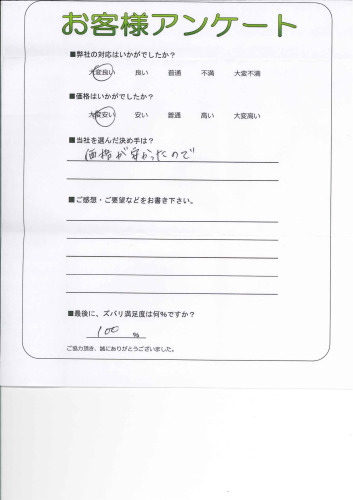 お客様アンケート
■弊社の対応はいかがでしたか?
大変良い 良い 普通 不満 大変不満
■価格はいかがでしたか?
大変安い 安い 普通 高い 大変高い
■当社を選んだ決め手は?
価格が安かったので
■ご感想・ご要望などをお書き下さい。
■最後に、ズバリ満足度は何%ですか?
100 %
ご協力頂き、誠にありがとうございました。